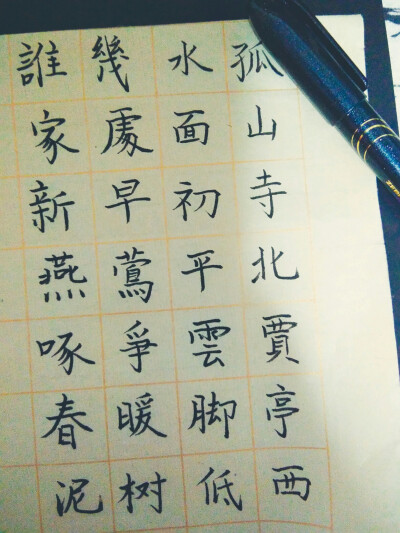 孤山寺北賈亭西
水面初平雲脚低
幾處早鶯爭暖树
誰家新燕啄春泥